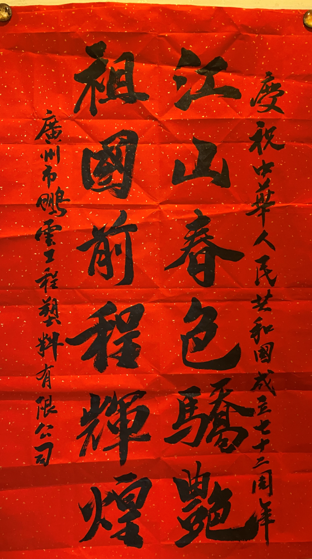 慶祝中華人民共和國成立七十三周年
江山春色驕艷
祖國前程輝煌
廣州市鵬雲工程塑料有限公司